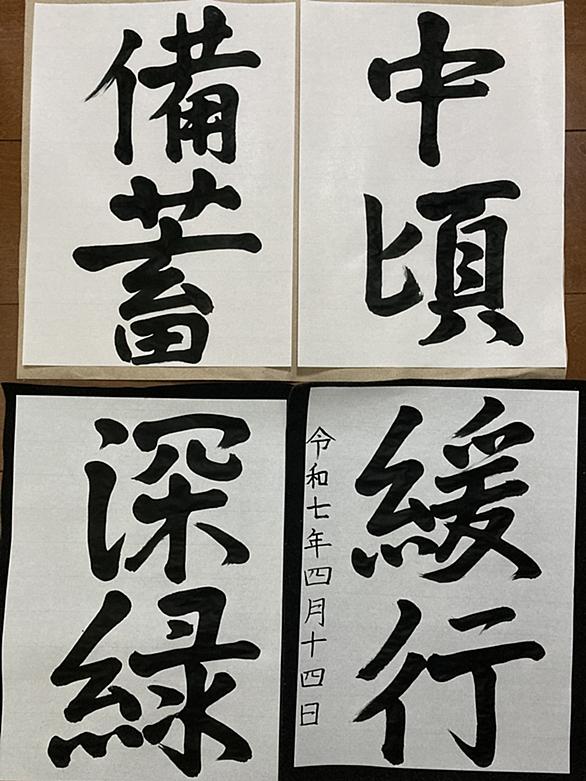 中頃
備蓄
緩行
令和七年四月十四日
深緑